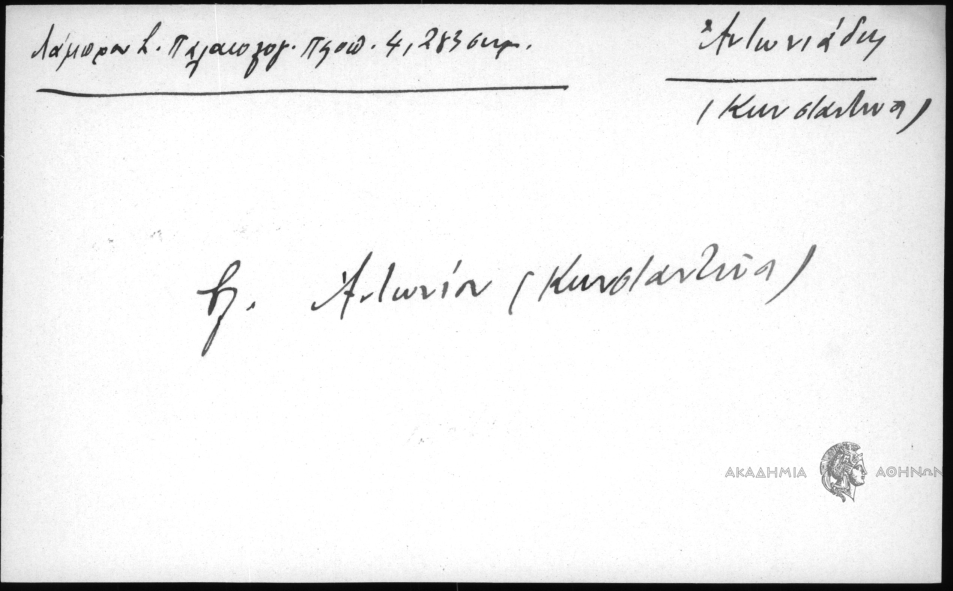 Λάμπρου Σ. Παλαιολόγ. Πελοπ. 4, 283 σημ.
Ἀντωνιάδης
(Κωνσταντῖνος)
βλ. Ἀντωνίου (Κωνσταντῖνος)
ΑΚΑΔΗΜΙΑ ΑΘΗΝΩΝ